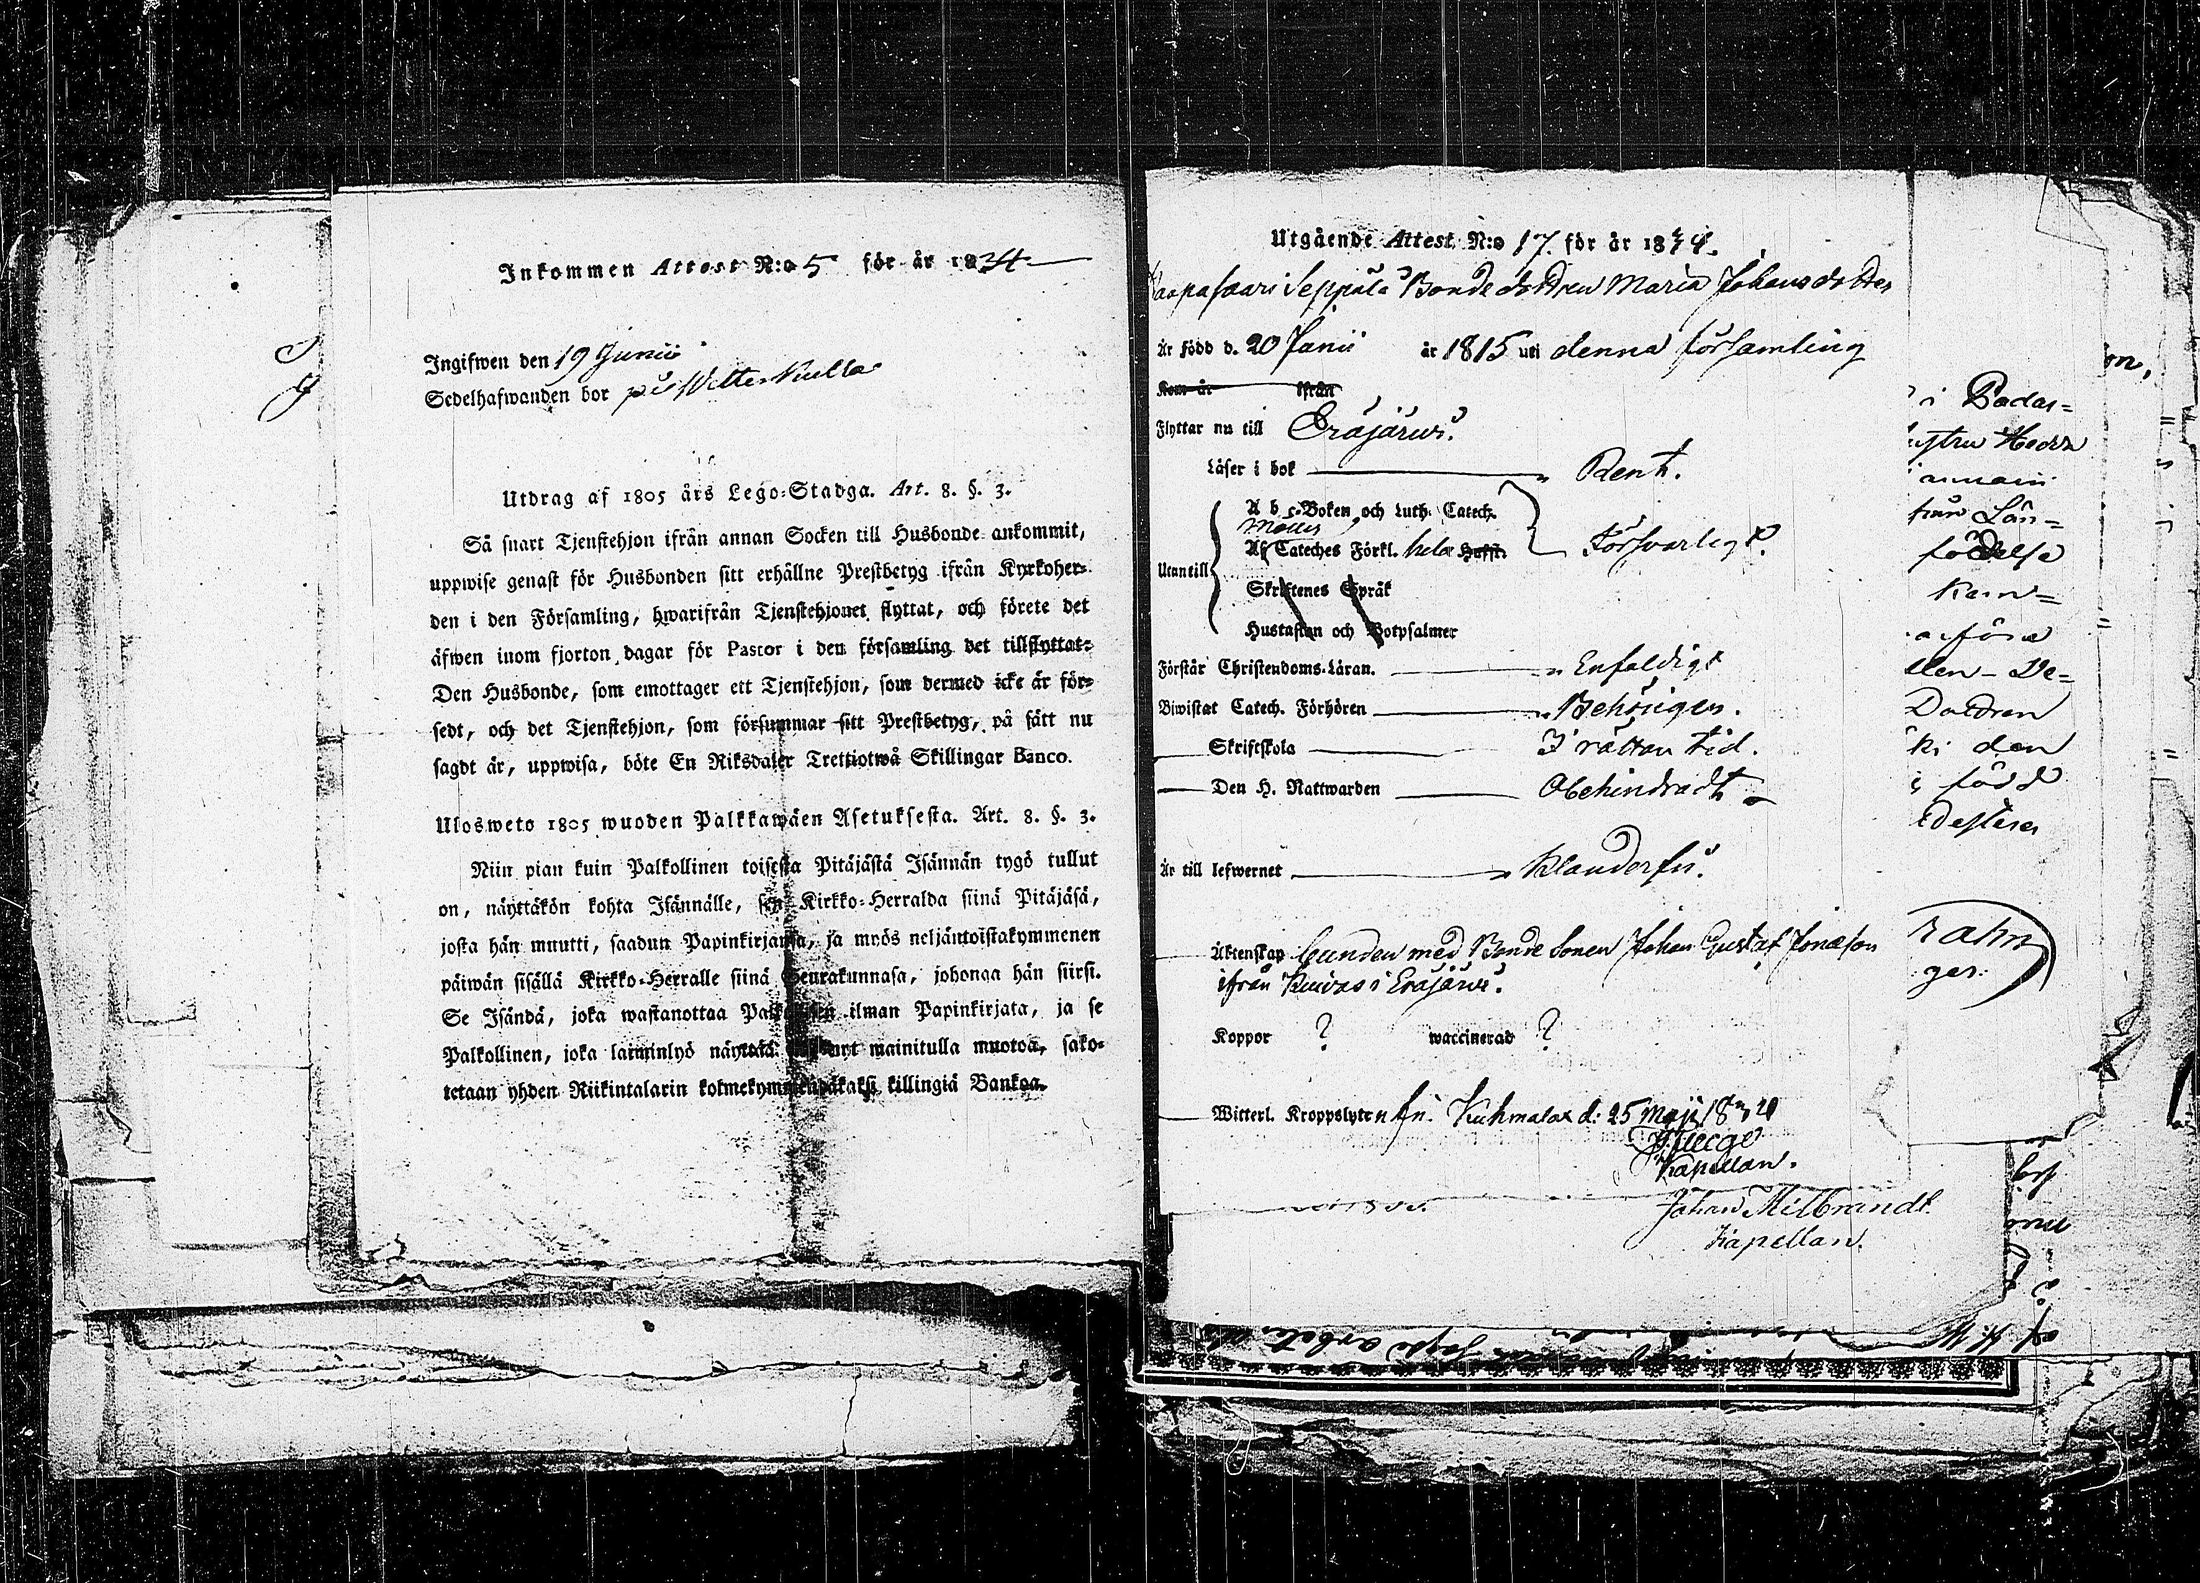 Inkommen Attest N:o 5 för år 1834
Ingifwen den 19 Junii
Sedelhafwanden bor på Wetterkulla
Utdrag af 1805 års Lego-Stadga. Art. 8. §. 3.
Så snart Tjenstehjon ifrån annan Socken till Husbonde ankommit,
uppwise genast för Husbonden sitt erhållne Prestbetyg ifrån Kyrkoher-
den i den Församling, hwarifrån Tjenstehjonet flyttat, och förete det
äfwen inom fjorton dagar för Pastor i den församling det tillflyttat.
Den Husbonde, som emottager ett Tjenstehjon, som dermed icke är för-
sedt, och det Tjenstehjon, som försummar sitt Prestbetyg, på sätt nu
sagdt är, uppwisa, böte En Riksdaler Trettiotwå Skillingar Banco.
Ulosweto 1805 wuoden Palkkawäen Asetuksesta. Art. 8. §. 3.
Niin pian kuin Palkollinen toisesta Pitäjästä Isännän tygö tullut
on, näyttäkön kohta Isännälle, sen Kirkko-Herralda siinä Pitäjäsä,
josta hän muutti, saadun Papinkirjansa, ja myös neljäntoistakymmenen
päiwän sisällä Kirkko-Herralle siinä Seurakunnasa, johonga hän siirsi.
Se Isändä, joka wastanottaa Palkollisen ilman Papinkirjata, ja se
Palkollinen, joka laiminlyö näyttää mainitulla muotoa, sako-
tetaan yhden Riikintalarin kolmekymmendäkaksi killingiä Bankoa.
Utgående Attest N:o 17. för år 1834.
Haapasaari Seppälä Bonde dottren Maria Johansdotter
Är född d. 20 Junii år 1815 uti denna församling
Kom år ifrån
Flyttar nu till Eräjärwi.
Läser i bok Rent.
A b c-Boken och Luth. Catech.
Af Cateches Förkl. hela Häfft. Försvarligt.
Utantill
Skriftenes Språk
Hustaflan och Botpsalmer
Förstår Christendoms-Läran. Enfaldigt
Biwistat Catech. Förhören Behörigen.
Skriftskola I rättan tid.
Den H. Nattwarden Obehindradt
Är till lefwernet Klanderfri.
Äktenskap bunden med Bonde Sonen Johan Gustaf Jonasson
ifrån Kuivas i Eräjärwi.
Koppor ? waccinerad ?
Witterl. Kroppslyten fri. Kuhmalax d: 25 Maji 1834
Kapellan.
Johan Milbrandt
Kapellan.
i Padas=
Hedda
från Län=
födelse
den De=
Dottren
ki den
född
ger.